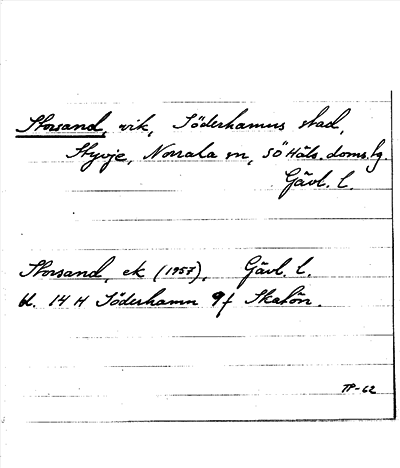 Storsand, vik, Söderhamns stad,
Styvje, Norrala sn, SÖ Häls. doms.
Gävl. l.
Storsand, ek (1957), Gävl. l.
bl. 14 H Söderhamn 9f Skatön.
TP-62